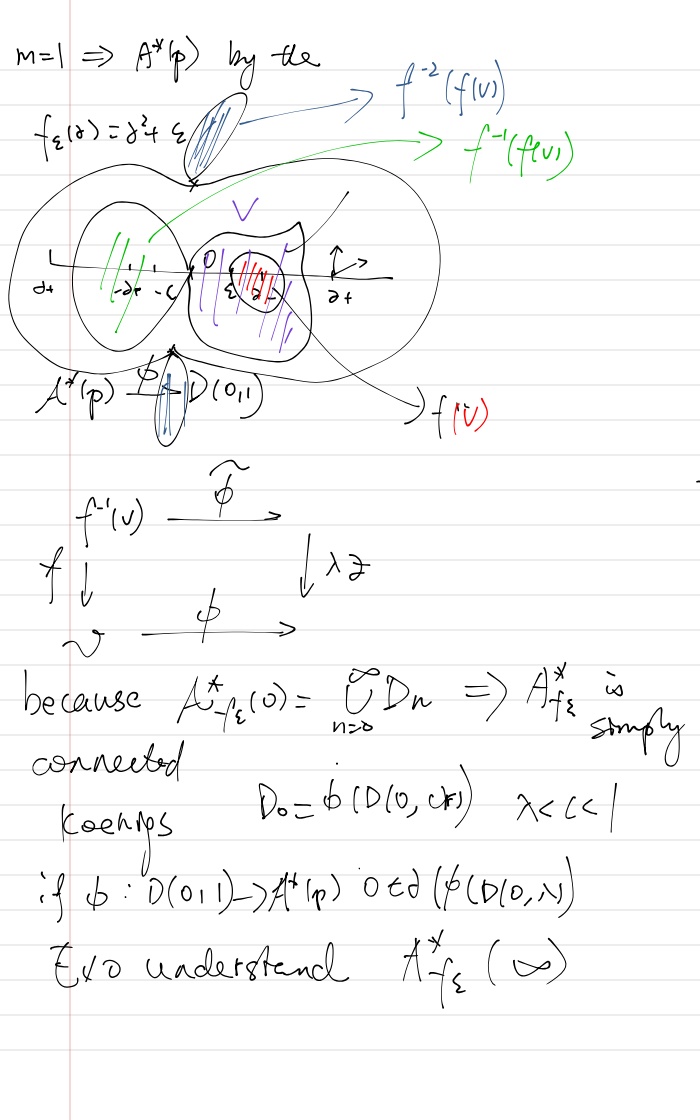 m=1 ⇒ A*(p) by the
f_ε(z) = z²+ ε
f⁻²(f(V))
f⁻¹(f(V))
V
0
z+ -z- -ε ε z- z+
A*(p) ϕ→ D(0,1)
f(V)
f⁻¹(V) ϕ̃→
f ↓ ↓ λz
V ϕ→
because A*_{f_ε}(0) = ∪_{n=0}^∞ D_n ⇒ A*_{f_ε} is simply
connected
Koenigs D₀ = ϕ(D(0, r)) λ<c<1
if ϕ : D(0,1) → A*(p) 0 ∈ ∂(ϕ(D(0,λ)
Exo understand A*_{f_ε}(∞)